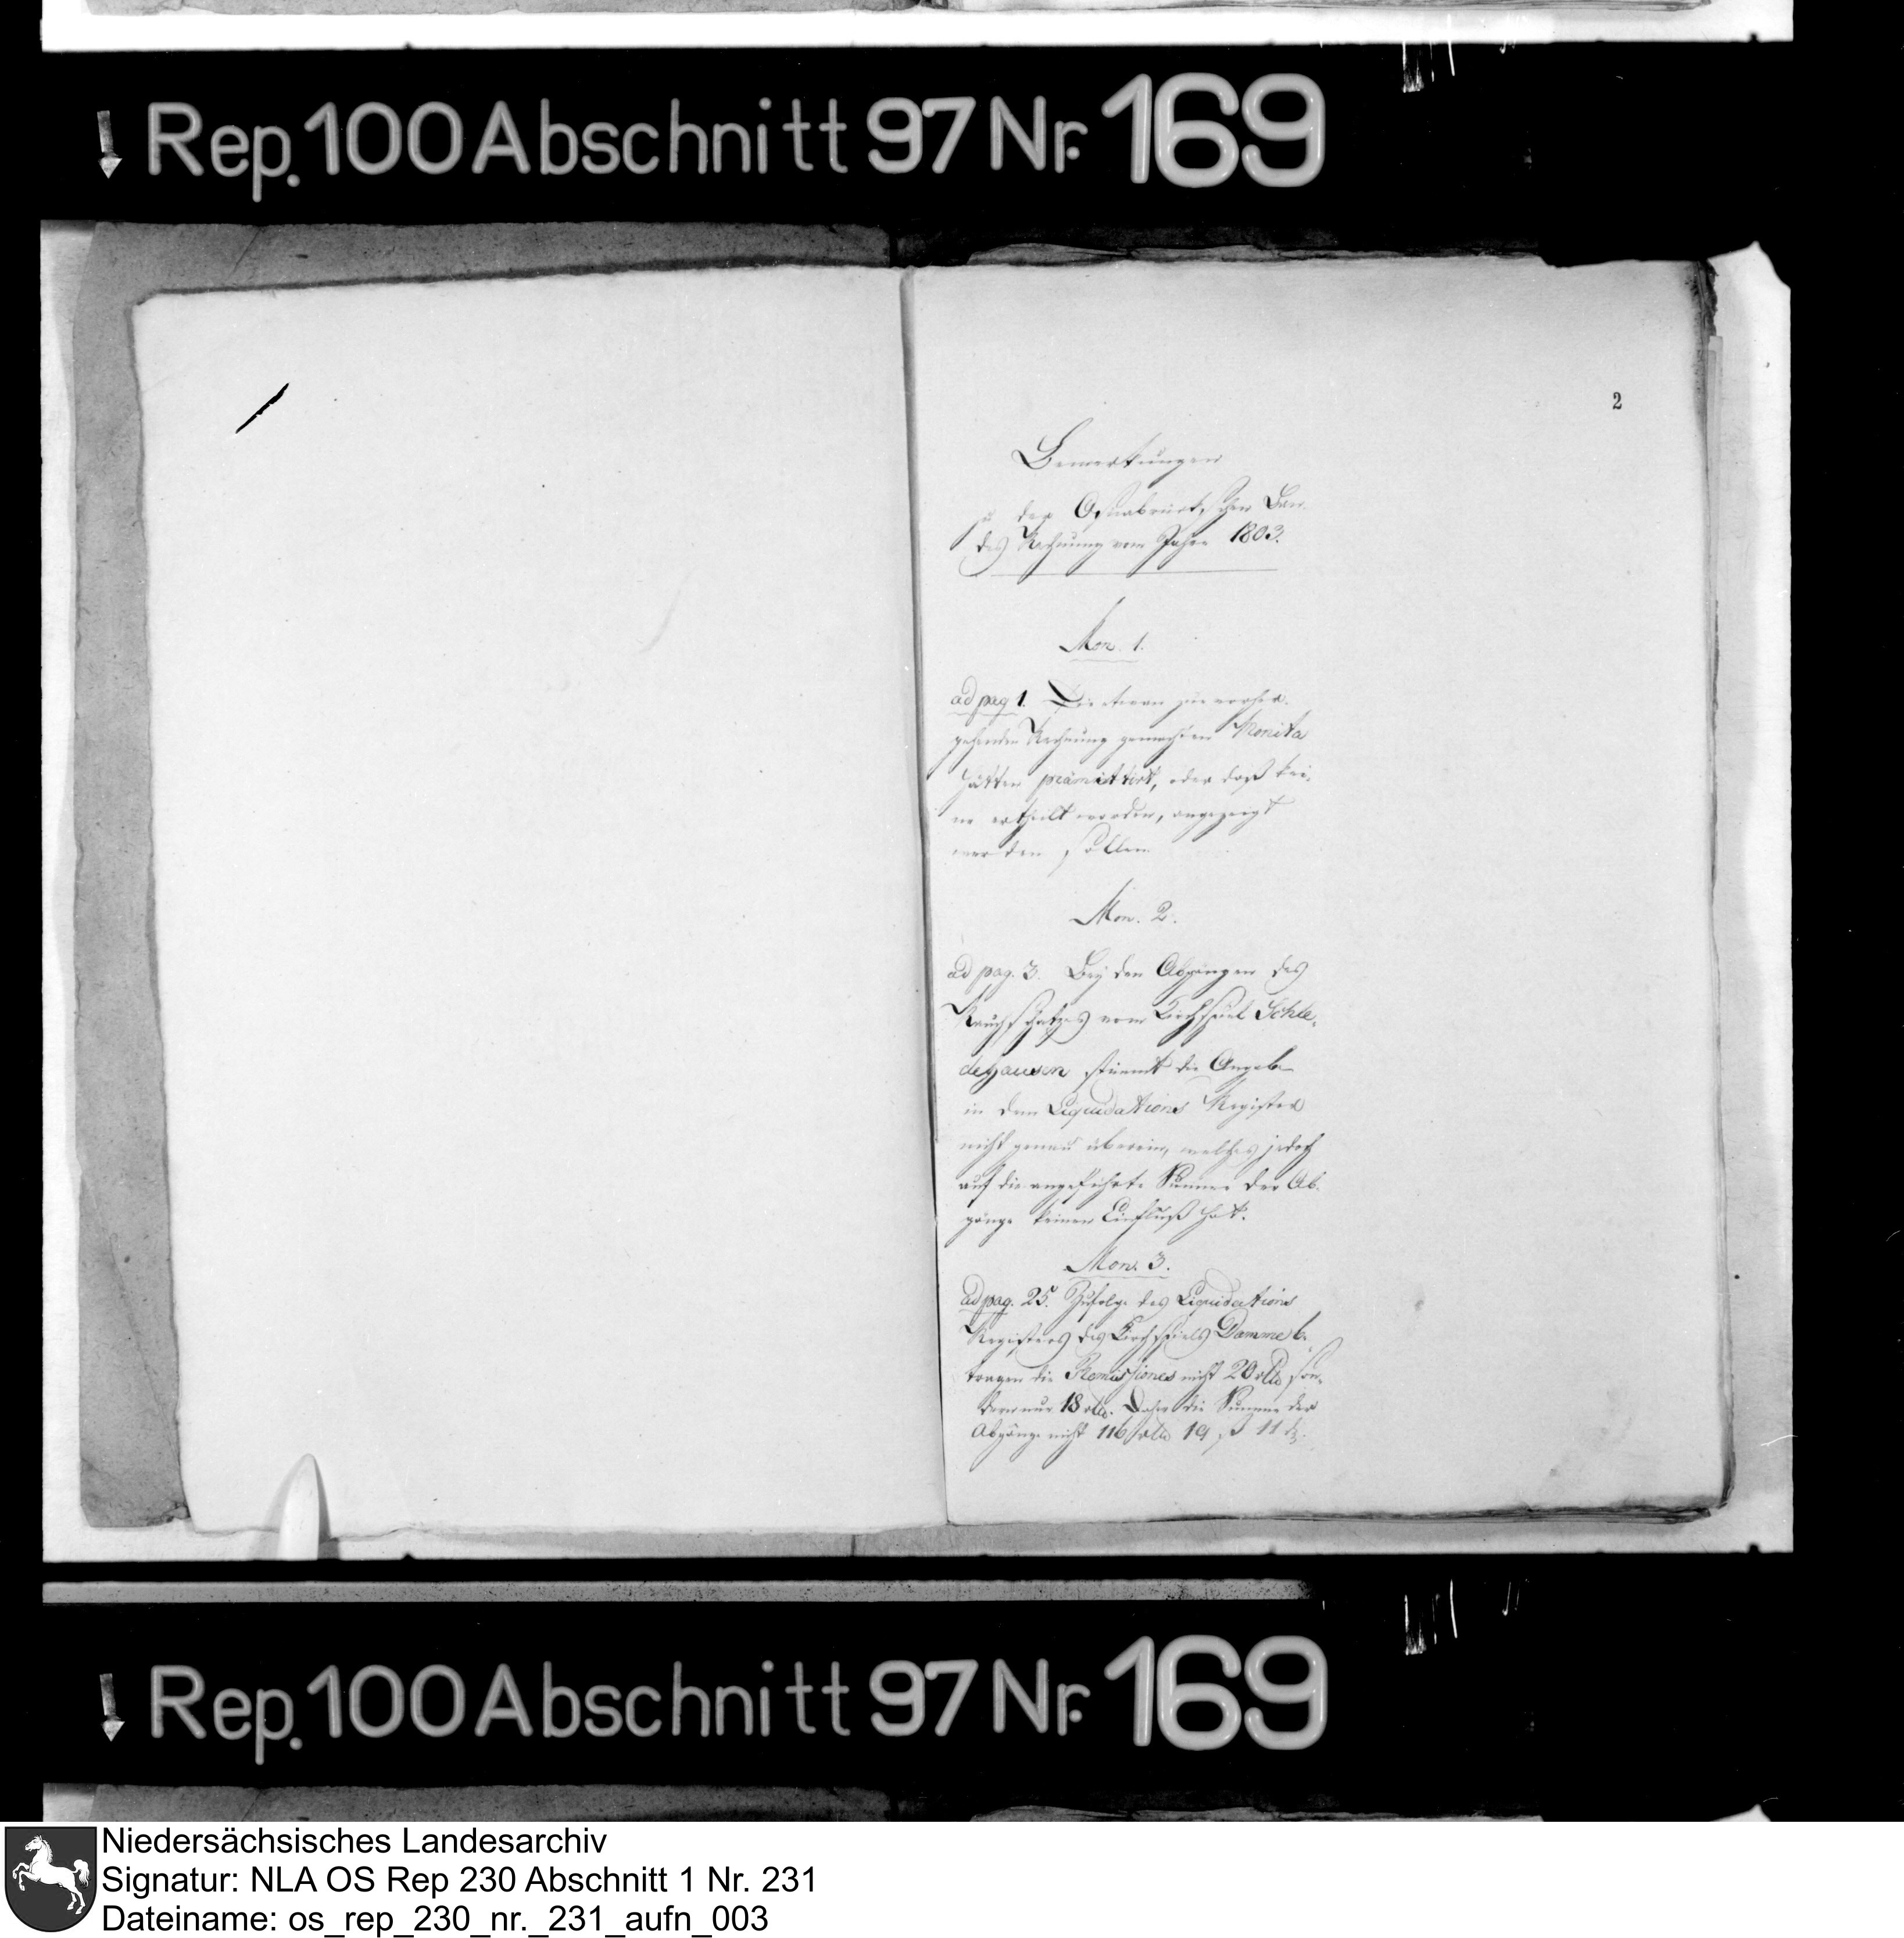 Rep. 100 Abschnitt 97 Nr. 169
2
Bemerkungen
zu der Osnabrückschen Lan-
des Rechnung vom Jahre 1803.
Mon. 1.
ad pag 1. Die etwan zur vorher-
gehenden Rechnung gemachten Monita
hätten praemittirt, oder daß kei-
ne ertheilt worden, angezeigt
werden sollen.
Mon. 2.
ad pag. 3. Bey den Abgängen des
Rauchschatzes vom Kirchspiel Schle-
dehausen stimmt die Angabe
in dem Liquidations Register
nicht genau überein, welches jedoch
auf die angeführte Summe der Ab-
gänge keinen Einfluß hat.
Mon. 3.
ad pag. 25. Zufolge des Liquidations
Registers des Kirchspiels Damme be-
tragen die Remissiones nicht 20 rtlr son-
dern nur 18 rtlr. Daher die Summe der
Abgänge nicht 116 rtlr 19 ß 11 d.
Rep. 100 Abschnitt 97 Nr. 169
Niedersächsisches Landesarchiv
Signatur: NLA OS Rep 230 Abschnitt 1 Nr. 231
Dateiname: os_rep_230_nr._231_aufn_003